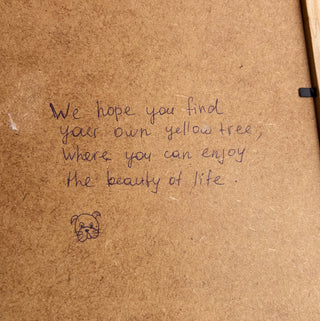 We hope you find
your own yellow tree,
where you can enjoy
the beauty of life.